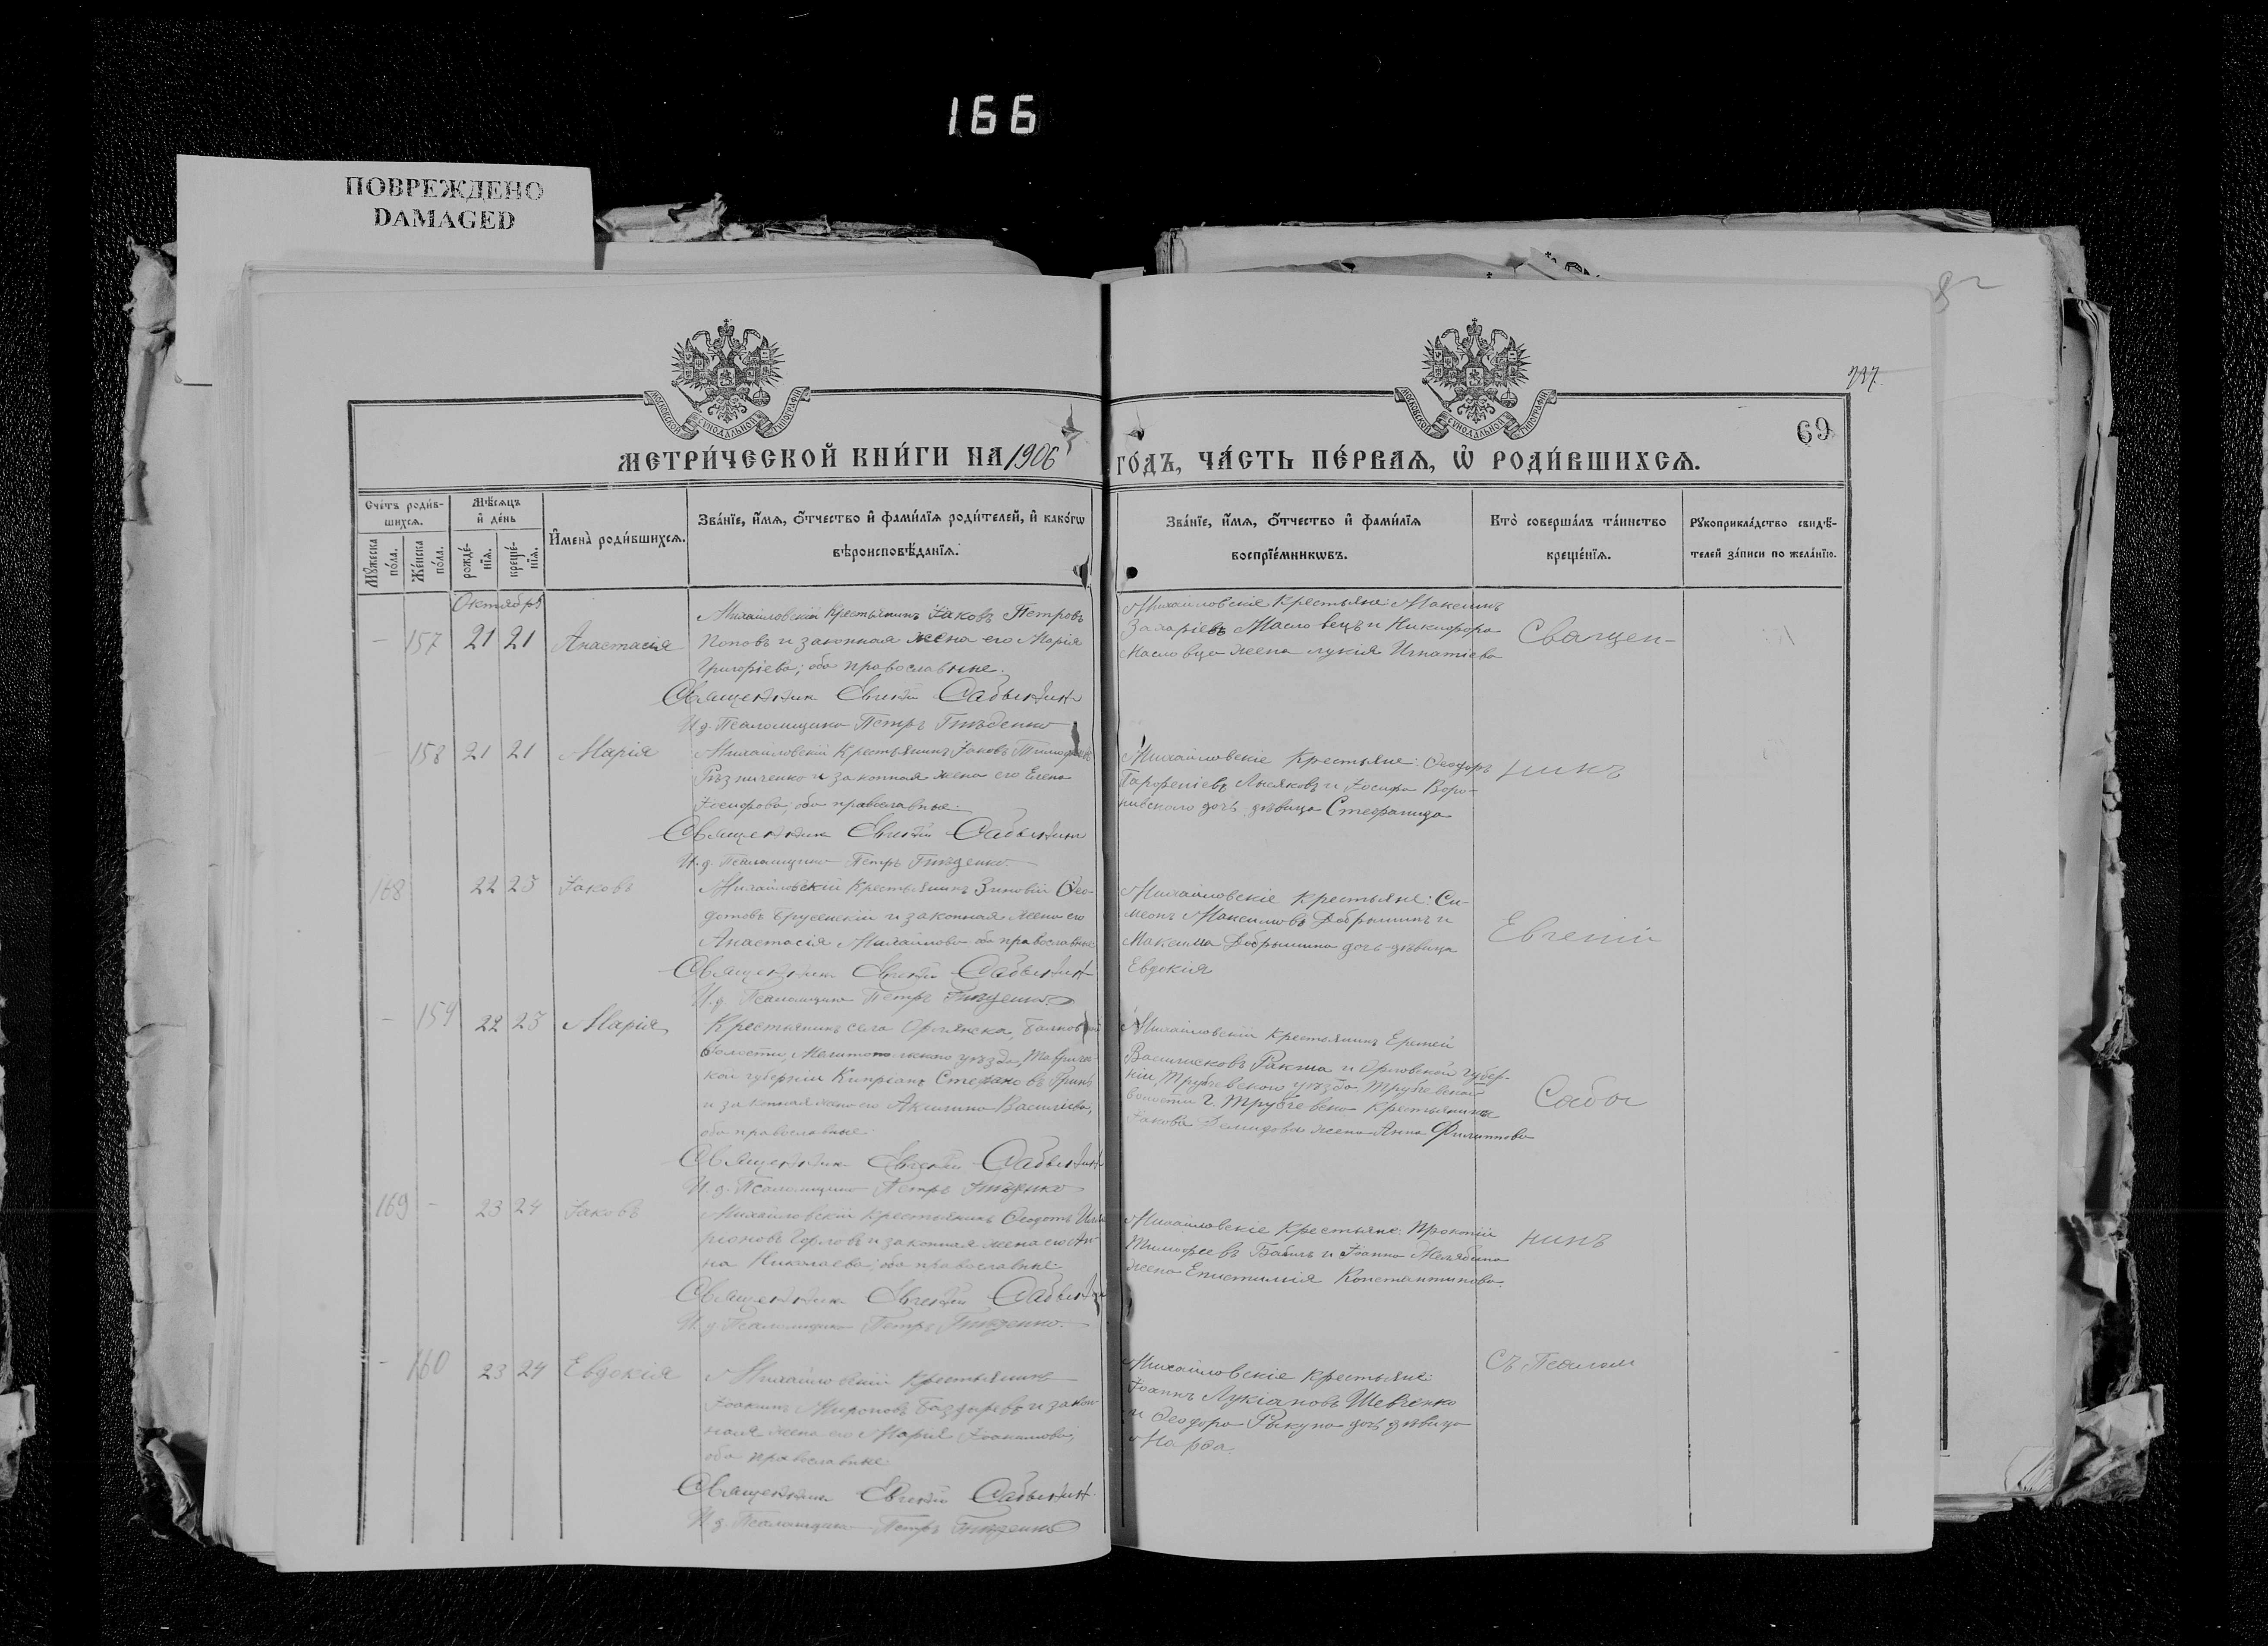 166
ПОВРЕЖДЕНО
DAMAGED
МОСКОВСКОЙ СѴНОДАЛЬНОЙ ТИПОГРАФІИ
МОСКОВСКОЙ СѴНОДАЛЬНОЙ ТИПОГРАФІИ
69
МЕТРИ́ЧЕСКОЙ КНИ́ГИ НА 1906 ГО́ДЪ, ЧА́СТЬ ПЕ́РВАѦ, Ѡ҆ РОДИ́ВШИХСѦ.
Сче́тъ роди́в-
шихсѧ.
Мꙋ́жеска по́ла.
Же́нска по́ла.
Мѣ́сѧцъ
и҆ де́нь
рожде́-
нїѧ.
креще́-
нїѧ.
И҆мена̀ роди́вшихсѧ.
Зва́нїе, и҆́мѧ, ѻ҆́тчество и҆ фами́лїѧ роди́телей, и҆ како́гѡ
вѣроисповѣ́данїѧ.
Зва́нїе, и҆́мѧ, ѻ҆́тчество и҆ фами́лїѧ
воспрїе́мникѡвъ.
Кто̀ соверша́лъ та́инство
креще́нїѧ.
Рꙋкоприкла́дство свидѣ́-
телей за́писи по жела́нїю.
Октябрь
157 21 21 Анастасія
Михайловскій крестьянинъ Іаковъ Петровъ
Поповъ и законная жена его Марія
Григоріева; оба православные.
Священникъ Евгеній
И. д. Псаломщика Петръ
Михайловскіе крестьяне: Максимъ
Захаріевъ Масловецъ и Никифора
Масловца жена Лукія Игнатіева
Священ-
158 21 21 Марія
Михайловскій крестьянинъ Іаковъ
Рѣзниченко и законная жена его Елена
Іосифова; оба православные.
Священникъ Евгеній
И. д. Псаломщика Петръ
Михайловскіе крестьяне: Ѳеодоръ
Парѳеніевъ Лысяковъ и Іосифа Воро-
нивскаго дочь дѣвица Стефанида
никъ
168 22 23 Іаковъ
Михайловскій крестьянинъ Зиновій Ѳео-
дотовъ и законная жена его
Анастасія Михайлова оба православные
Священникъ Евгеній
И. д. Псаломщика Петръ
Михайловскіе крестьяне: Си-
меонъ Максимовъ Добрынинъ и
Максима Добрынина дочь дѣвица
Евдокія
Евгеній
159 22 23 Марія
Крестьянинъ села Орлянска,
волости, Мелитопольскаго уѣзда, Тавричес-
кой губерніи Кипріанъ Стефановъ
и законная жена его Акилина Василіева,
оба православные.
Священникъ Евгеній
И. д. Псаломщика Петръ
Михайловскій крестьянинъ Еремей
Васильковъ Ракша и Орловской губер-
ніи, Трубчевскаго уѣзда Трубчевской
волости г. Трубчевска крестьянина
Іакова Демидова жена Анна Филиппова
169 23 24 Іаковъ
Михайловскій крестьянинъ Ѳеодотъ
Горловъ и законная жена его Ан-
на Николаева; оба православные.
Священникъ Евгеній
И. д. Псаломщика Петръ
Михайловскіе крестьяне: Прокопій
Тимоѳеевъ Бабичъ и Іоанна
жена Епистимія Константинова.
нинъ
160 23 24 Евдокія
Михайловскій крестьянинъ
Іоакимъ Мироновъ и закон-
ная жена его Марія Іоакимова;
оба православные.
Священникъ Евгеній
И. д. Псаломщика Петръ
Михайловскіе крестьяне:
Іоаннъ Лукіановъ Шевченко
и Ѳеодора Рыкуна дочь дѣвица
Марѳа.
Съ Псалом